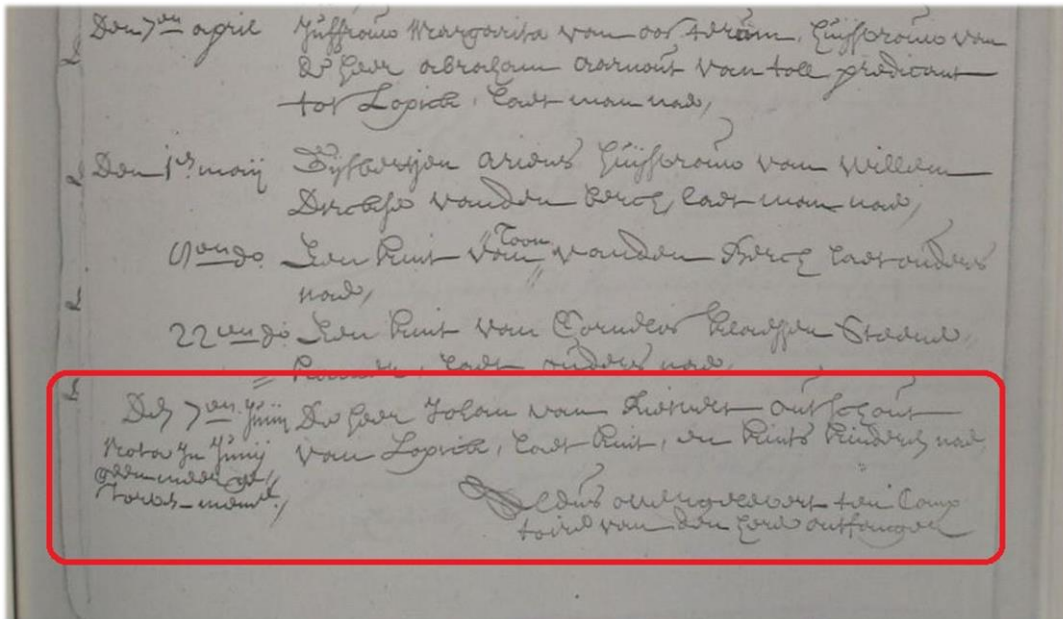 Den 7en april Juffrouw Margarita van oosterum, huijsvrouw van
de heer abraham aarnout van toll predicant
tot Lopick, laet man na,
Den 1en maij Sijberijen ariens huijsvrouw van willem
Dircksse vanden berch, laet man na,
9en do Een kint van Toon vanden Berch laet ouders
na,
22en do Een kint van Cornelis Claessen
laet ouders na,
Den 7en Junij De heer Johan van out schout
van Lopick, laet kint, en kints kinders na,
Nota In Junij
geen meer
Aldus overgelevert ten Comp
toire van den heer ontfanger